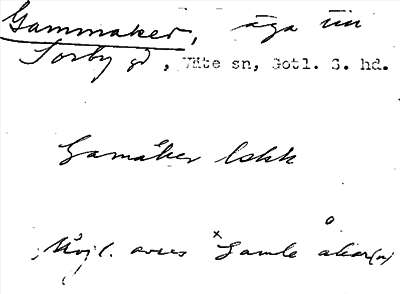 Gammaker, äga till
Sorby gd, Väte sn, Gotl. S. hd.
Gamåker lskk
Möjl. avses *Gamle åker(n)